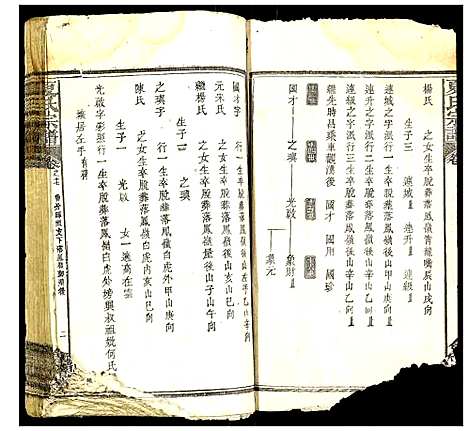 楊氏 之女生卒脫葬落鳳嶺青龍嘴辰山戌向
生子三 連城 連升 連級
連城之字派行一生卒脫葬落鳳嶺後山甲山庚向
連升之字派行二生卒脫葬落鳳嶺後山辛山乙向
連級之字派行三生卒脫葬落鳳嶺後山辛山乙向
國才 國用 國珍
繼先時昌乘車觀漢後
國才 之璵 光啟 象財
象元
國才字 行一生卒脫葬落鳳嶺後山辛山乙向
元宋氏 之女生卒脫葬落鳳嶺後山亥山巳向
繼楊氏 之女生卒脫葬落鳳嶺量後山子山午向
生子一 之璵
之璵字 行一生卒脫葬落鳳嶺白虎外甲山庚向
陳氏 之女生卒脫葬落鳳嶺白虎内亥山巳向
生子一 光啟 女一適高在雲
光啟字彩彰行一生卒脫葬落鳳嶺白虎外塝與叔祖妣何氏
墳居左手有碑
夏氏宗譜 卷之七
二